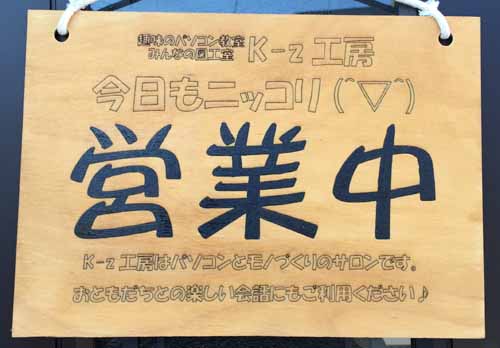 趣味のパソコン教室
みんなの図工室
K-z 工房
今日もニッコリ(^▽^)
営業中
K-z 工房はパソコンとモノづくりのサロンです。
おともだちとの楽しい会話にもご利用ください♪